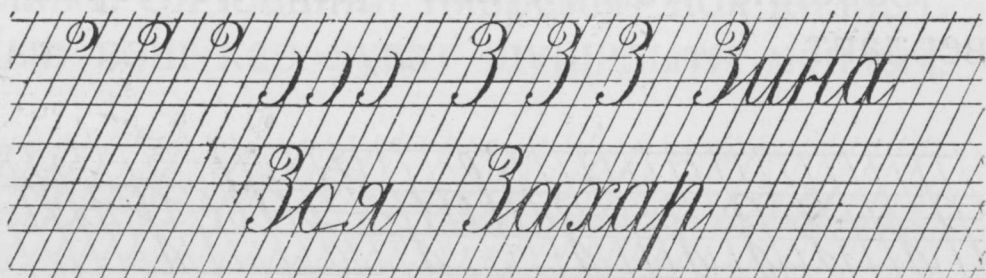 З З З Зина
Зоя Захар